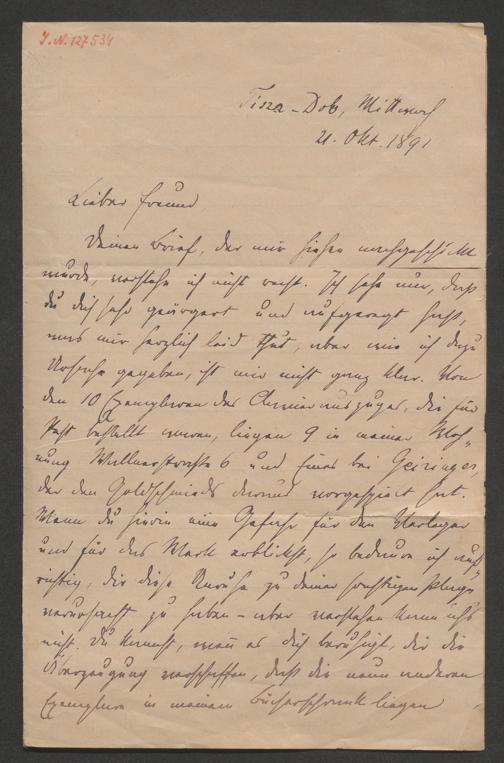 I.N. 127534
Tisza-Dob, Mittwoch
21. Okt. 1891
Lieber Freund,
Deinen Brief, der mir hieher nachgeschickt
wurde, verstehe ich nicht recht. Ich sehe nur, daß
du dich sehr geärgert und aufgeregt hast,
was mir herzlich leid thut, aber wie ich dazu
Ursache gegeben, ist mir nicht ganz klar. Von
den 10 Exemplaren des Clavierauszuges, die für
Pest bestellt waren, liegen 9 in meiner Woh-
nung Wallnerstraße 6 und Eines bei Geiringer,
der den Goldschmieds daraus vorgespielt hat.
Wenn du hierin eine Gefahr für den Verleger
und für das Werk erblickst, so bedaure ich auf-
richtig, dir diese Unruhe zu deiner sonstigen Plage
verursacht zu haben – aber verstehen kann ich's
nicht. Du kannst, wenn es dich beruhigt, dir die
Überzeugung verschaffen, daß die neun anderen
Exemplare in meinem Bücherschrank liegen